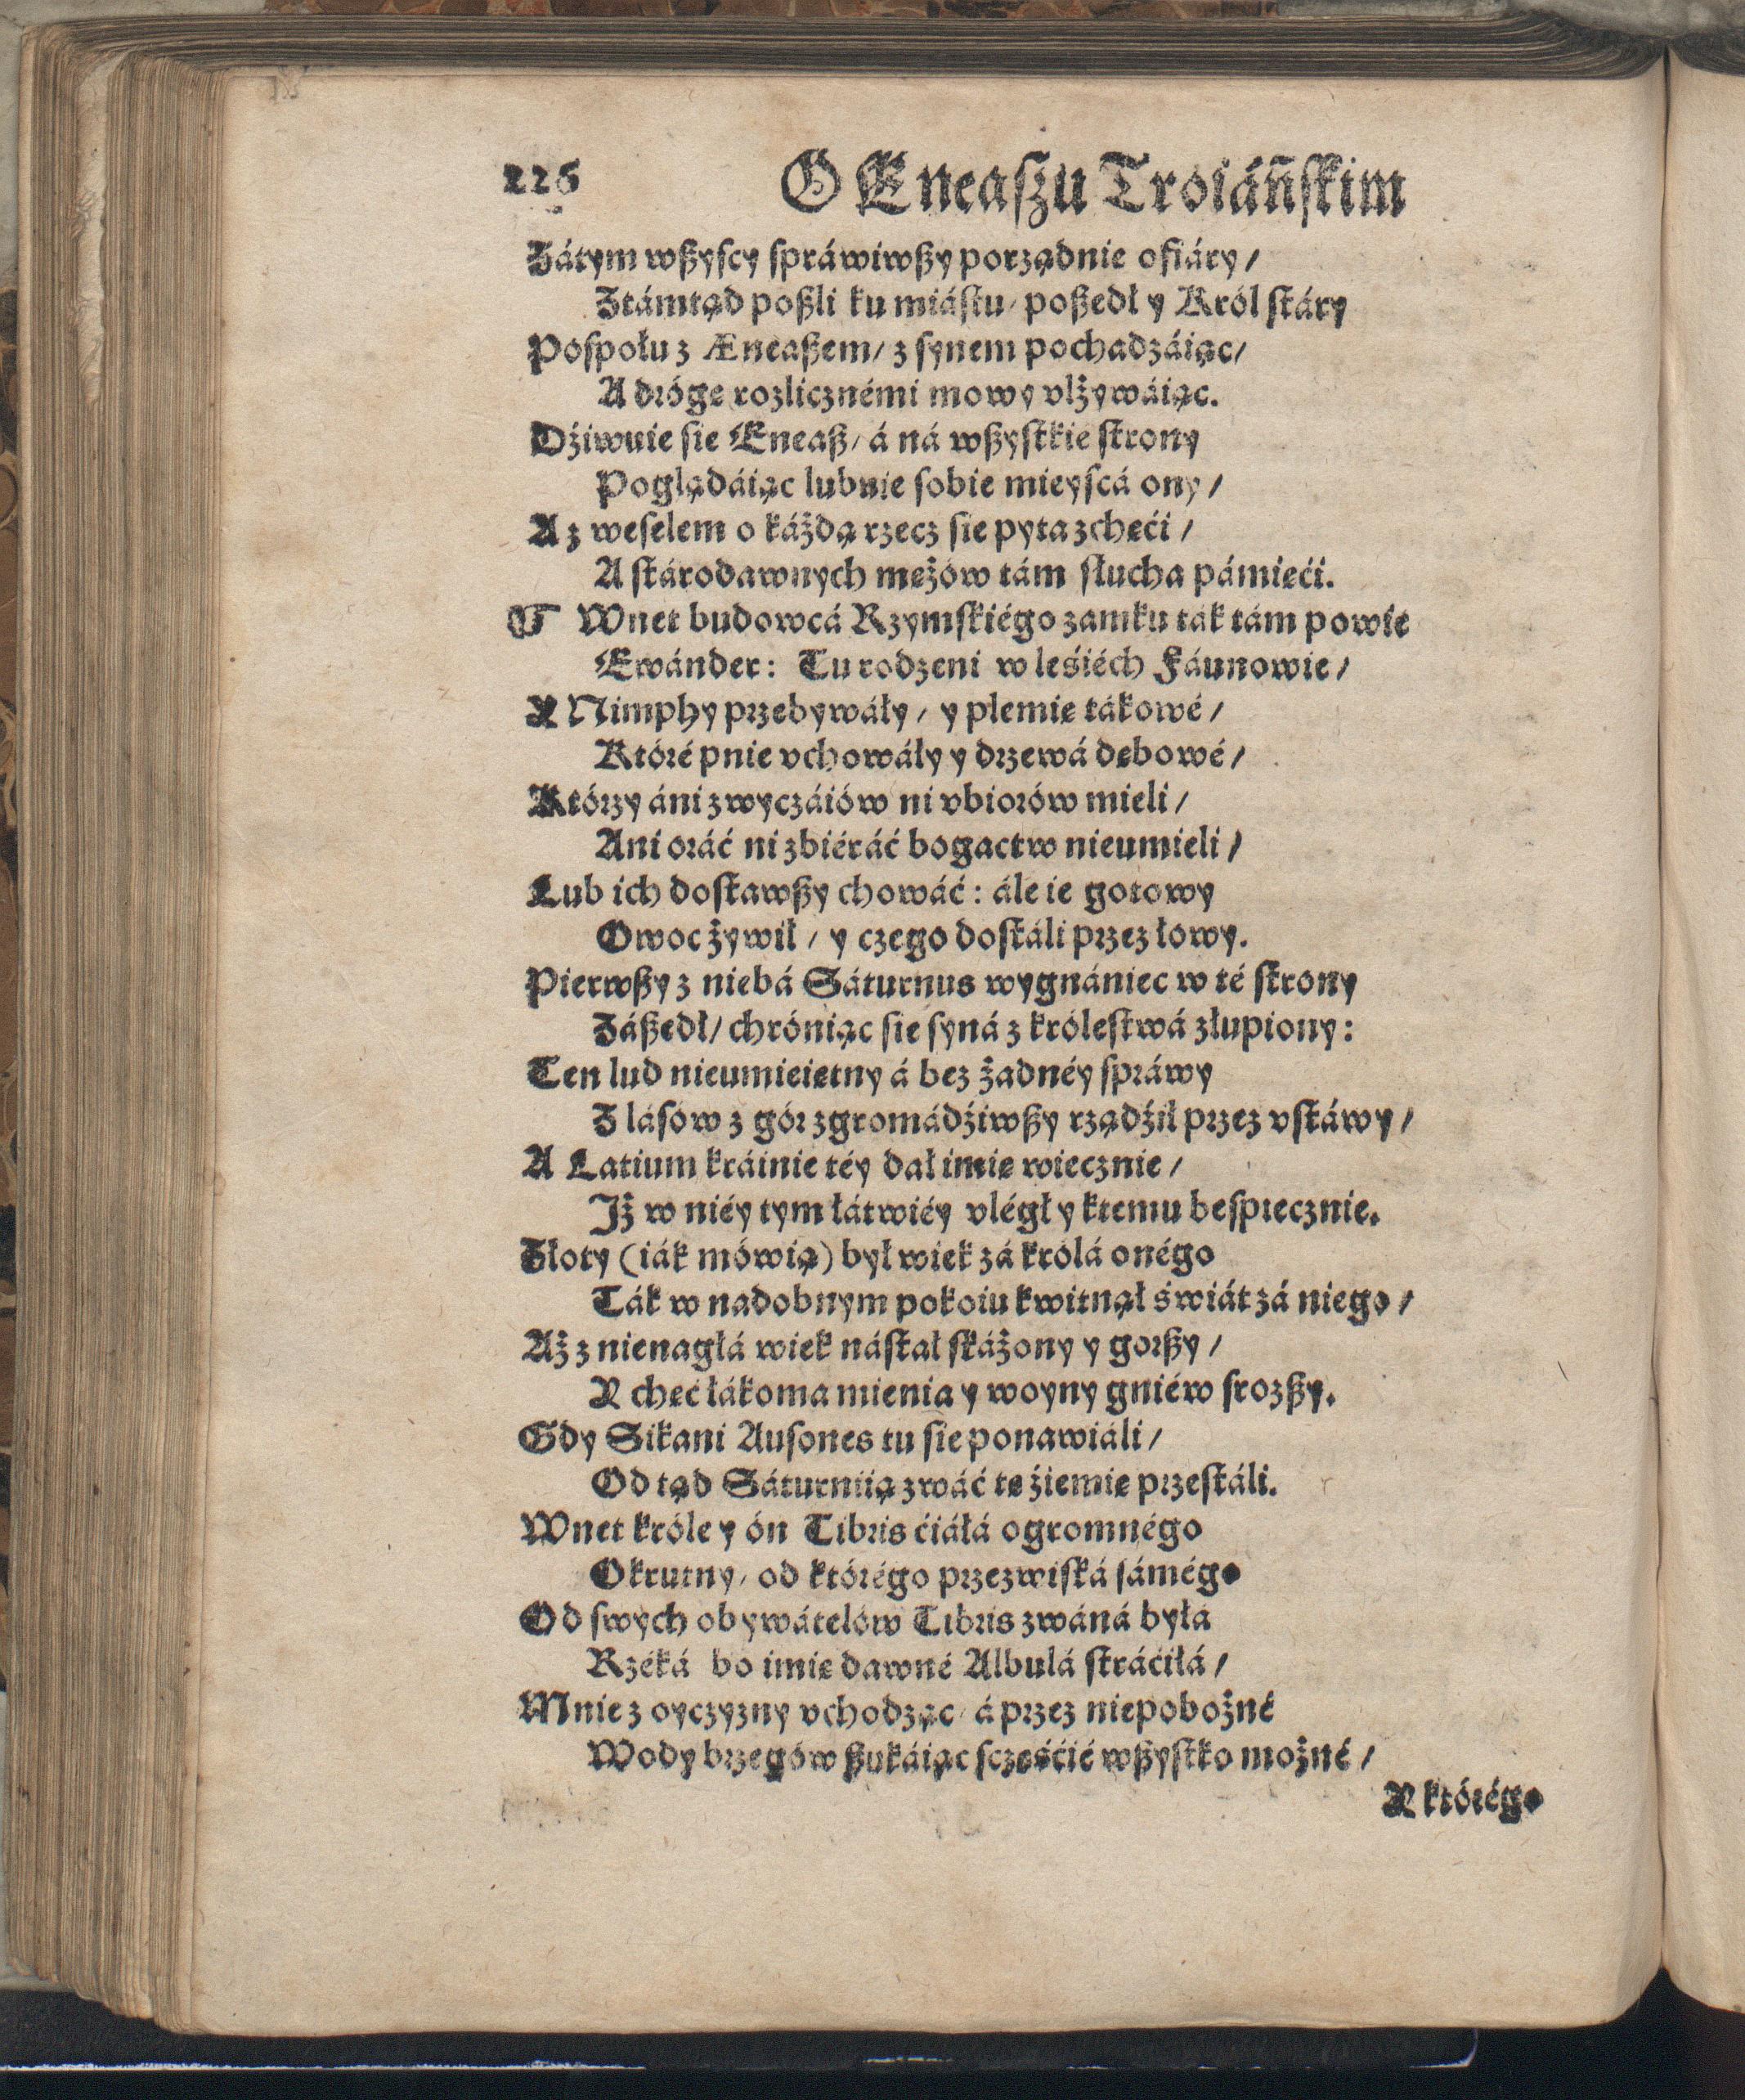 226 O Eneaſzu Troiáńſkim
Zátym wßyſcy ſpráwiwßy porządnie ofiáry /
Ztámtąd poßli ku miáſtu / poßedł y Król ſtáry
Poſpołu z Æneaßem / z ſynem pochadzáiąc /
A drógę rozlicznémi mowy vlżywáiąc.
Dźiwuie ſie Eneaß / á ná wßyſtkie ſtrony
Poglądáiąc lubuie ſobie mieyſcá ony /
A z weſelem o káżdą rzecz ſie pyta z chęći /
A ſtárodawnych mężów tám ſłucha pámięći.
Wnet budowcá Rzymſkiégo zamku ták tám powie
Ewánder: Tu rodzeni w leśiéch Fáunowie /
Y Nimphy przebywáły / y plemię tákowé /
Któré pnie vchowáły y drzewá dębowé /
Którzy áni zwyczáiów ni vbiorów mieli /
Ani oráć ni zbiéráć bogactw nieumieli /
Lub ich doſtawßy chowáć: ále ie gotowy
Owoc żywił / y czego doſtáli przez łowy.
Pierwßy z niebá Sáturnus wygnániec w té ſtrony
Záßedł / chróniąc ſie ſyná z króleſtwá złupiony:
Ten lud nieumieiętny á bez żadnéy ſpráwy
Z lásów z gór zgromádźiwßy rządźił przez vſtáwy /
A Latium kráinie téy dał imię wiecznie /
Jż w niéy tym łátwiéy vlégł y ktemu beſpiecznie.
Złoty (iák mówią) był wiek zá królá onégo
Ták w nadobnym pokoiu kwitnął świát zá niego /
Aż z nienagłá wiek náſtał ſkáżony y gorßy /
Y chęć łákoma mienia y woyny gniéw ſrozßy.
Gdy Sikani Auſones tu ſie ponawiáli /
Od tąd Sáturniią zwáć tę źiemię przeſtáli.
Wnet króle y ón Tibris ćiáłá ogromnégo
Okrutny / od którégo przezwiſká ſámégo
Od ſwych obywátelów Tibris zwáná byłá
Rzéká bo imię dawné Albulá ſtráćiłá /
Mnie z oyczyzny vchodząc / á przez niepobożné
Wody brzegów ßukáiąc ſczęśćié wßyſtko możné /
Y którégo